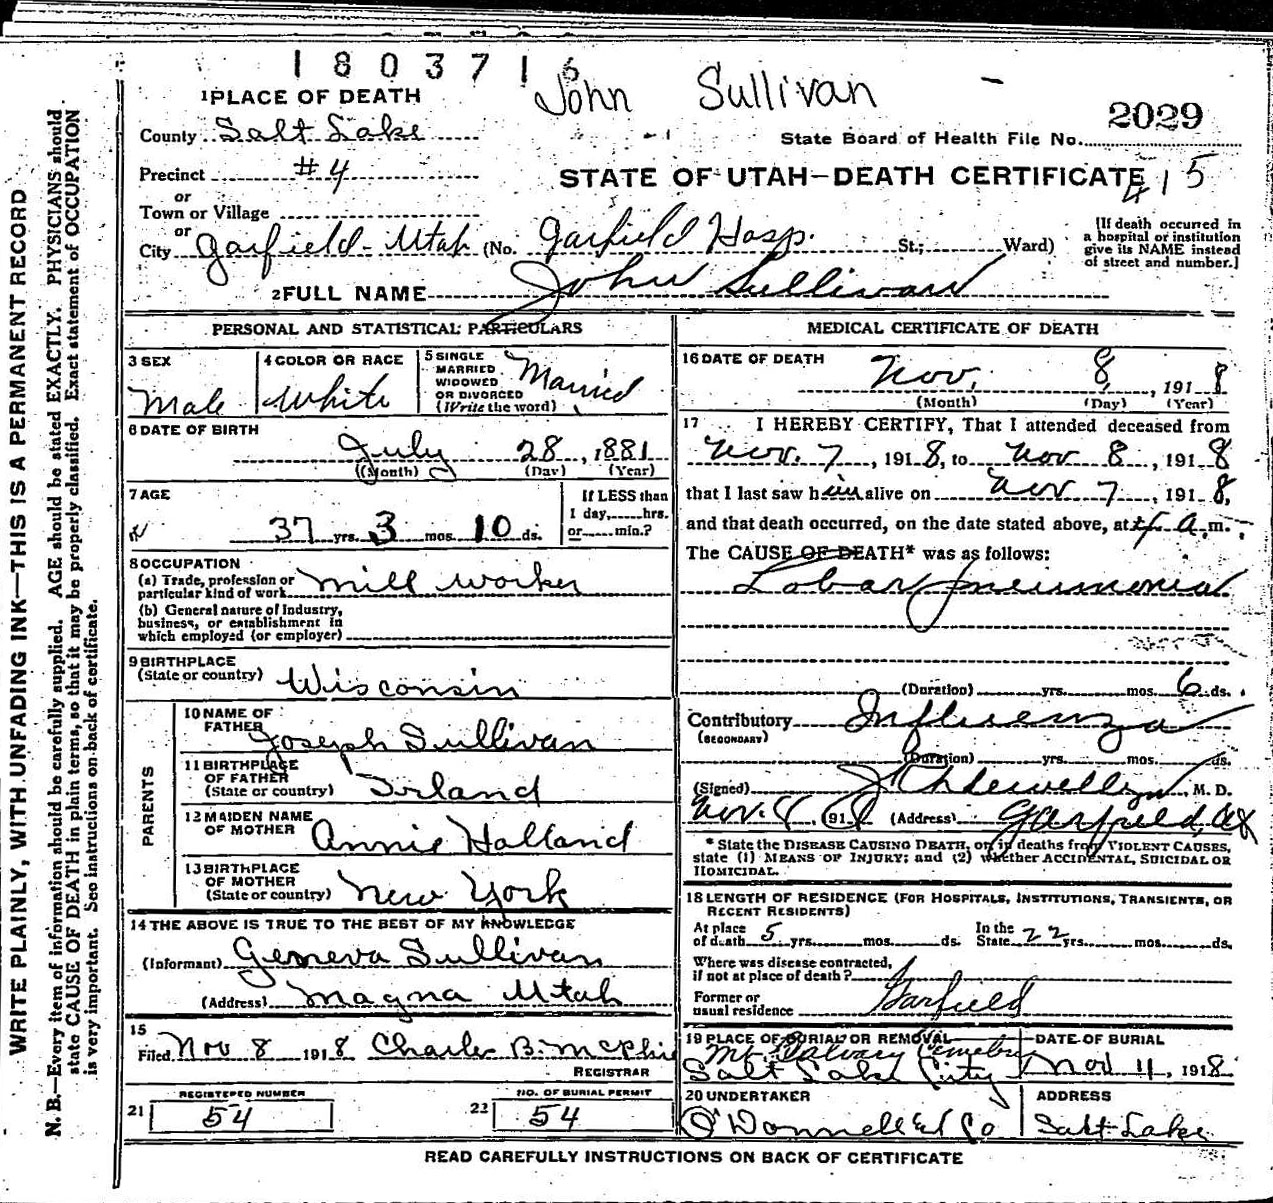 1803716
John Sullivan
1 PLACE OF DEATH
2029
County Salt Lake
State Board of Health File No.
Precinct #4
STATE OF UTAH—DEATH CERTIFICATE
415
or
Town or Village
or
City Garfield - Utah (No. Garfield Hosp. St.; Ward)
[If death occurred in
a hospital or institution
give its NAME instead
of street and number.]
2 FULL NAME John Sullivan
PERSONAL AND STATISTICAL PARTICULARS
3 SEX
Male
4 COLOR OR RACE
White
5 SINGLE
MARRIED
WIDOWED
OR DIVORCED
(Write the word)
Married
6 DATE OF BIRTH
July 28, 1881
(Month) (Day) (Year)
7 AGE
37 yrs. 3 mos. 10 ds.
If LESS than
1 day, hrs.
or min.?
8 OCCUPATION
(a) Trade, profession or
particular kind of work Mill worker
(b) General nature of Industry,
business, or establishment in
which employed (or employer)
9 BIRTHPLACE
(State or country) Wisconsin
PARENTS
10 NAME OF
FATHER Joseph Sullivan
11 BIRTHPLACE
OF FATHER
(State or country) Irland
12 MAIDEN NAME
OF MOTHER Annie Holland
13 BIRTHPLACE
OF MOTHER
(State or country) New York
14 THE ABOVE IS TRUE TO THE BEST OF MY KNOWLEDGE
(Informant) Geneva Sullivan
(Address) Magna Utah
15
Filed Nov 8 1918 Charles B. McPhie
REGISTRAR
21 REGISTERED NUMBER
54
22 NO. OF BURIAL PERMIT
54
MEDICAL CERTIFICATE OF DEATH
16 DATE OF DEATH
Nov. 8, 1918
(Month) (Day) (Year)
17 I HEREBY CERTIFY, That I attended deceased from
Nov. 7, 1918, to Nov 8, 1918
that I last saw him alive on Nov 7, 1918,
and that death occurred, on the date stated above, at 4 a.m.
The CAUSE OF DEATH* was as follows:
Lobar pneumonia
(Duration) yrs. mos. 6 ds.
Contributory Influenza
(SECONDARY)
(Duration) yrs. mos. ds.
(Signed) Llewellyn, M. D.
Nov. 191 (Address) Garfield,
* State the DISEASE CAUSING DEATH, or in deaths from VIOLENT CAUSES,
state (1) MEANS OF INJURY; and (2) whether ACCIDENTAL, SUICIDAL OR
HOMICIDAL.
18 LENGTH OF RESIDENCE (FOR HOSPITALS, INSTITUTIONS, TRANSIENTS, OR
RECENT RESIDENTS)
At place
of death 5 yrs. mos. ds.
In the
State 22 yrs. mos. ds.
Where was disease contracted,
if not at place of death?
Former or
usual residence Garfield
19 PLACE OF BURIAL OR REMOVAL
Mt Calvary Cemetery
Salt Lake City
DATE OF BURIAL
Nov 11, 1918
20 UNDERTAKER
O'Donnell & Co
ADDRESS
Salt Lake
READ CAREFULLY INSTRUCTIONS ON BACK OF CERTIFICATE
WRITE PLAINLY, WITH UNFADING INK—THIS IS A PERMANENT RECORD
N. B.—Every item of information should be carefully supplied. AGE should be stated EXACTLY. PHYSICIANS should
state CAUSE OF DEATH in plain terms, so that it may be properly classified. Exact statement of OCCUPATION
is very important. See instructions on back of certificate.